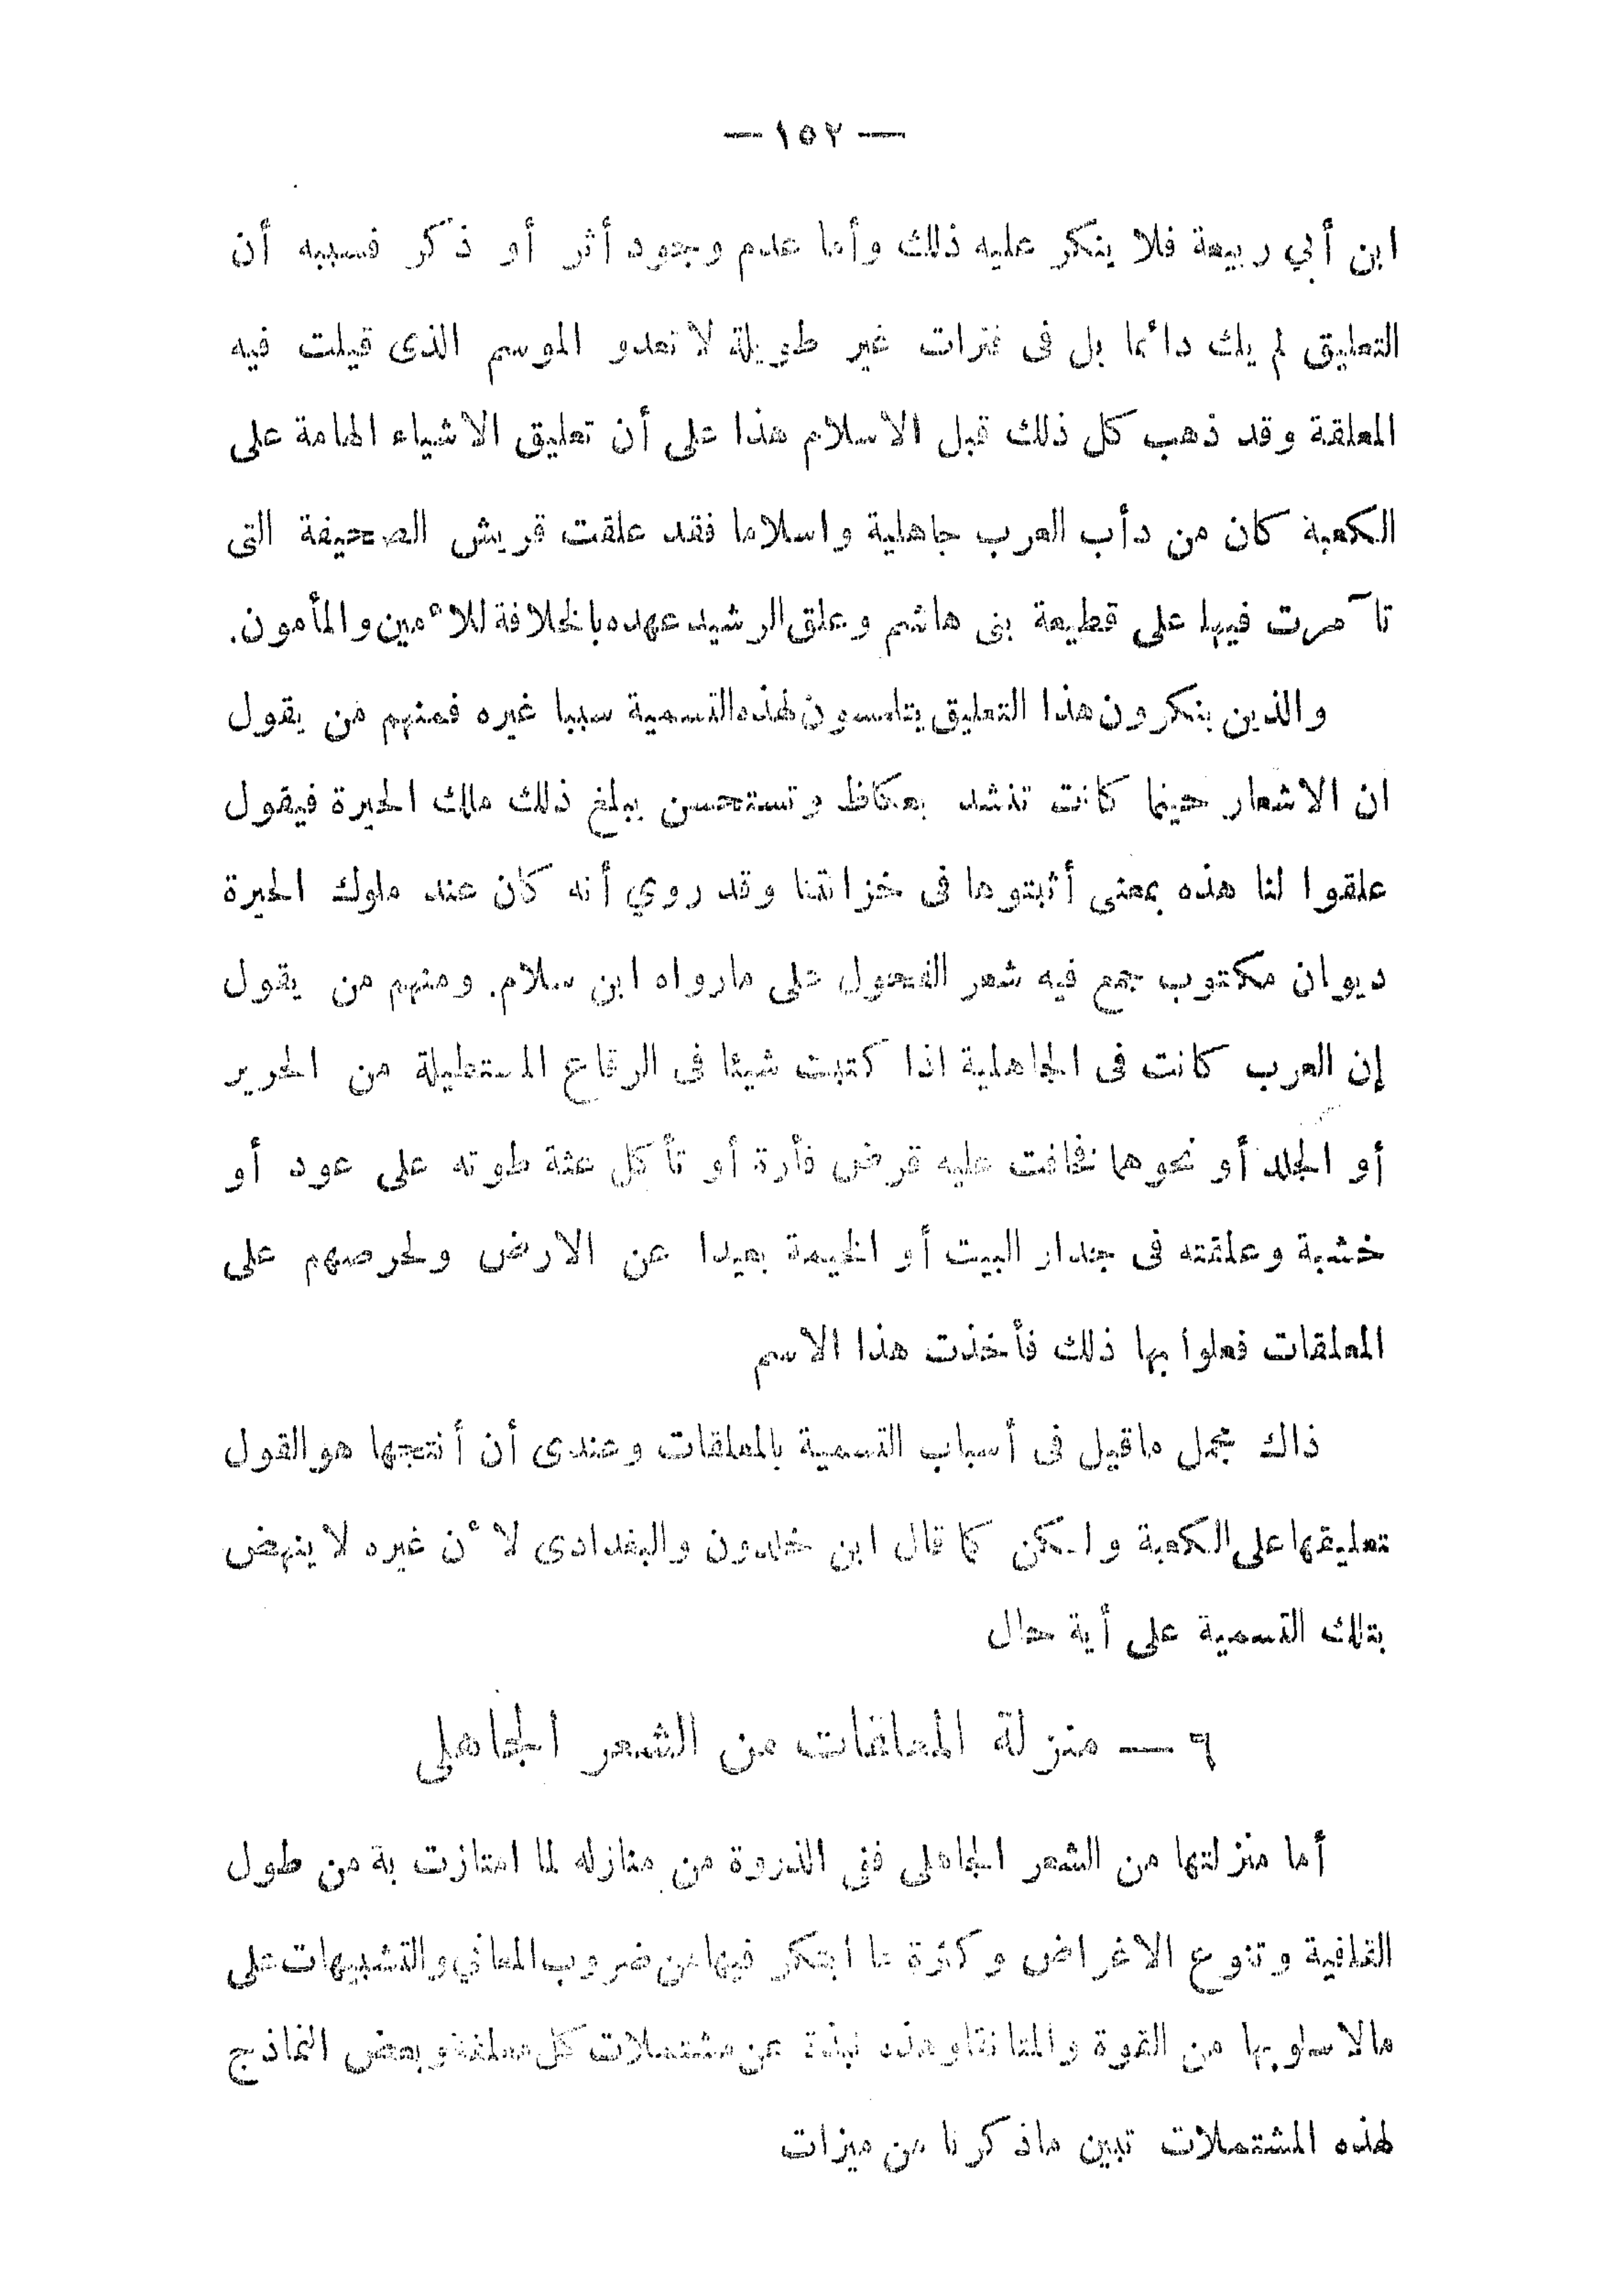 — ١٥٢ —
ابن أبي ربيعة فلا ينكر عليه ذلك وأما عدم وجود أثر أو ذكر فسببه أن
التعليق لم يك دائما بل فى فترات غير طويلة لا تعدو الموسم الذى قيلت فيه
المعلقة وقد ذهب كل ذلك قبل الاسلام هذا على أن تعليق الاشياء الهامة على
الكعبة كان من دأب العرب جاهلية واسلاما فقد علقت قريش الصحيفة التى
تآمرت فيها على قطيعة بنى هاشم وعلق الرشيد عهده بالخلافة للأمين والمأمون.
والذين ينكرون هذا التعليق يتلمسون لهذه التسمية سببا غيره فمنهم من يقول
ان الاشعار حينما كانت تنشد بعكاظ وتستحسن يبلغ ذلك ملك الحيرة فيقول
علقوا لنا هذه بمعنى أثبتوها فى خزائننا وقد روي أنه كان عند ملوك الحيرة
ديوان مكتوب جمع فيه شعر الفحول على مارواه ابن سلام. ومنهم من يقول
إن العرب كانت فى الجاهلية اذا كتبت شيئا فى الرقاع المستطيلة من الحرير
أو الجلد أو نحوهما فخافت عليه قرض فأرة أو تأكل عثة طوته على عود أو
خشبة وعلقته فى جدار البيت أو الخيمة بعيدا عن الارض ولحرصهم على
المعلقات فعلوا بها ذلك فأخذت هذا الاسم
ذاك مجمل ماقيل فى أسباب التسمية بالمعلقات وعندى أن أنتجها هو القول
تعليقها على الكعبة ولكن كما قال ابن خلدون والبغدادى لأن غيره لا ينهض
بتلك التسمية على أية حال
٦ — منزلة المعلقات من الشعر الجاهلى
أما منزلتها من الشعر الجاهلى ففى الذروة من منازله لما امتازت بة من طول
القافية وتنوع الاغراض وكثرة ما ابتكر فيها من ضروب المعاني والتشبيهات على
مالاسلوبها من القوة والمتانة وهذه نبذة عن مشتملات كل معلقة وبعض النماذج
لهذه المشتملات تبين ماذكرنا من ميزات